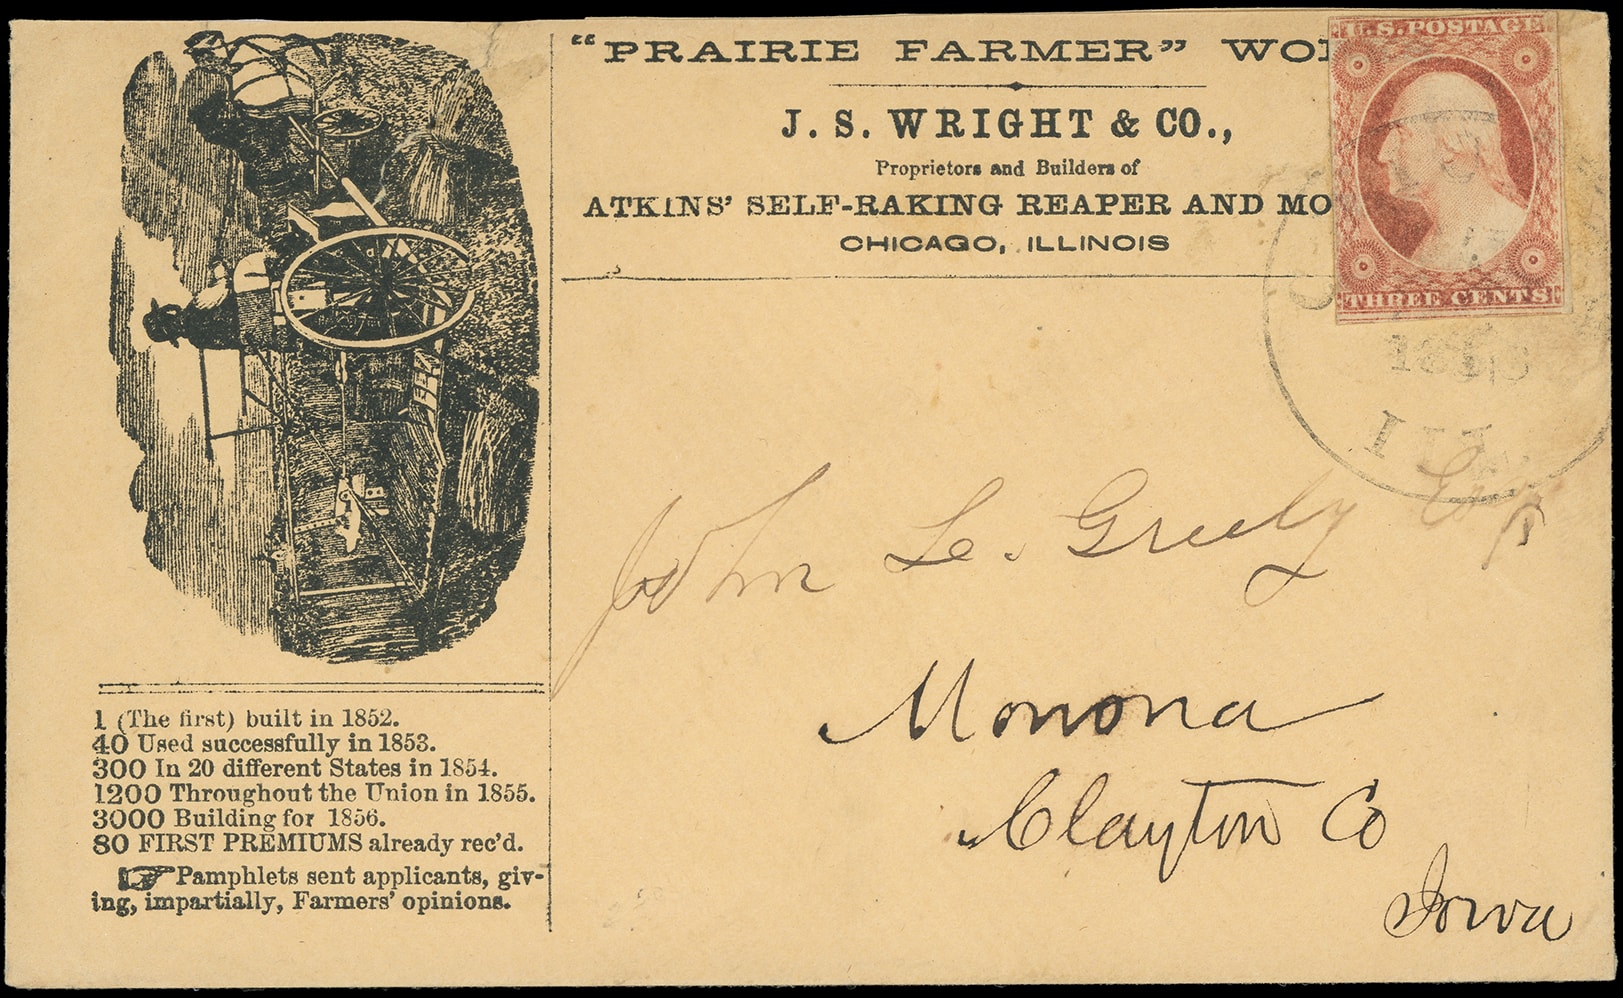 "PRAIRIE FARMER"
J. S. WRIGHT & CO.,
Proprietors and Builders of
ATKINS' SELF-RAKING REAPER AND MO
CHICAGO, ILLINOIS
U.S. POSTAGE
THREE CENTS
ILL
John Le. Greely Esqr
Monona
Clayton Co
Iowa
1 (The first) built in 1852.
40 Used successfully in 1853.
300 In 20 different States in 1854.
1200 Throughout the Union in 1855.
3000 Building for 1856.
80 FIRST PREMIUMS already rec'd.
☞ Pamphlets sent applicants, giv-
ing, impartially, Farmers' opinions.